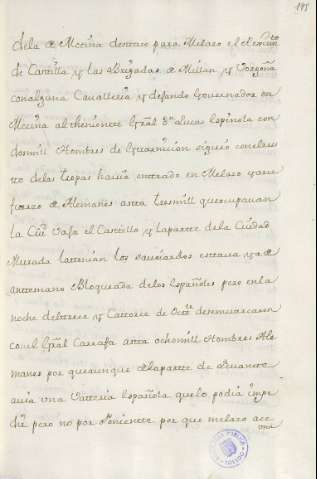 195
dela de Mecina dentrar para Melaso el
de Castilla y las Brigadas de Millan y Borgoña
con alguna Cavalleria y dejando Governador en
Mecina al theniente Gral Dn Lucas Espinola con
dosmill Hombres de Guarnicion siguio con el res
to delas tropas havia entrado en Melaso
fuerzo de Alemanes asta tresmill que ocupauan
la Ciud vaja el Castillo y laparte de la Ciudad
Murada la tenian los sauoiardos estaua ya de
antemano Bloqueada delos Españoles pero en la
noche del trese y Catorce de Octre desenuarcaron
con el Gral Carrafa asta ochomill Hombres Ale
manes por que aunque a laparte de Leuante
auia vna Vatteria Española que lo podia impe
dir pero no por Poniente por que melaso